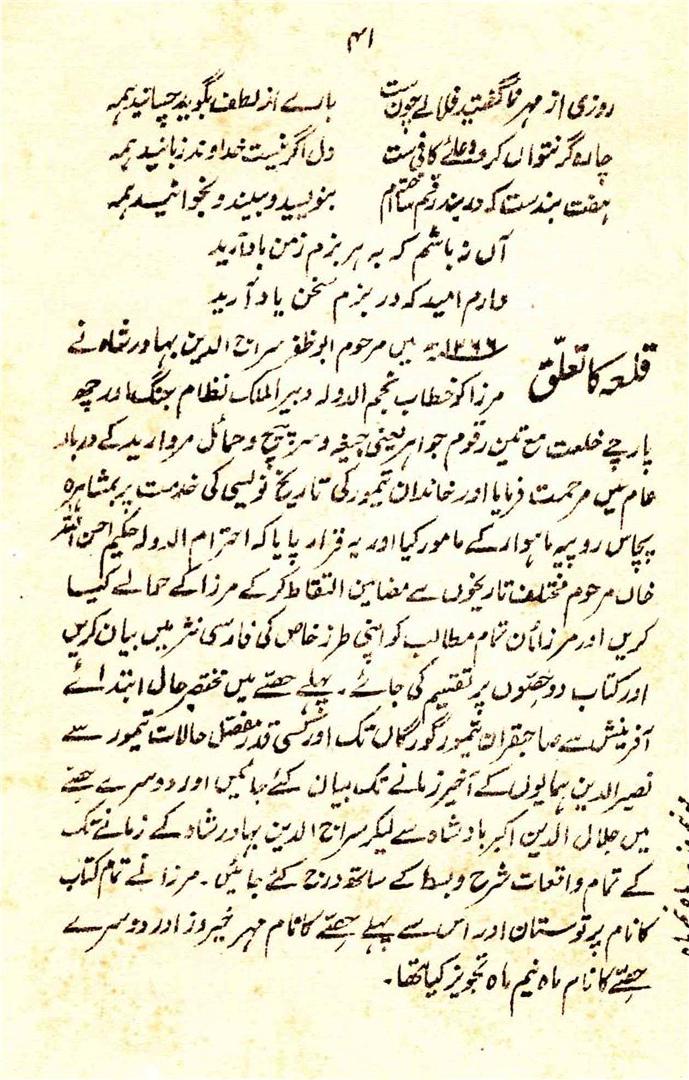 ۴۱
روزی از مہر نگفتید فلانے چون ست بارے از لطف بگویید چسانید ہمہ
چارہ گر نتواں کرد دعائے کافی ست دل اگر نیست خداوند زبانید ہمہ
ہفت بند ست کہ در بند رقم ساختہ ام بنویسید و ببیند و بخوانید ہمہ
آں نہ باشم کہ بہ ہر بزم زمن یاد آرید
دارم امید کہ در بزم سخن یاد آرید
قلعہ کا تعلّق
۱۲۶۶ھ میں مرحوم ابو ظفر سراج الدین بہادر شاہ نے
مرزا کو خطاب نجم الدولہ دبیر الملک نظام جنگ اور چھ
پارچے خلعت مع تین رقوم جواہر یعنی جیغہ و سرپیچ و حمائل مروارید کے دربار
عام میں مرحمت فرمایا اور خاندان تیمور کی تاریخ نویسی کی خدمت پر بمشاہرہ
پچاس روپیہ ماہوار کے مامور کیا اور یہ قرار پایا کہ احترام الدولہ حکیم احسن اللہ
خاں مرحوم مختلف تاریخوں سے مضامین التقاط کر کے مرزا کے حوالے کیا
کریں اور مرزا اُن تمام مطالب کو اپنی طرز خاص کی فارسی نثر میں بیان کریں
اور کتاب دو حصّوں پر تقسیم کی جائے۔ پہلے حصّے میں مختصر حال ابتدائے
آفرینش سے صاحبقران تیمور گورگاں تک اور کسی قدر مفصّل حالات تیمور سے
نصیر الدین ہمایوں کے اخیر زمانے تک بیان کئے جائیں اور دوسرے حصّے
میں جلال الدین اکبر بادشاہ سے لیکر سراج الدین بہادر شاہ کے زمانے تک
کے تمام واقعات شرح و بسط کے ساتھ درج کئے جائیں۔ مرزا نے تمام کتاب
کا نام پرتوستان اور اس سے پہلے حصّے کا نام مہر نیمروز اور دوسرے
حصّے کا نام ماہ نیم ماہ تجویز کیا تھا۔